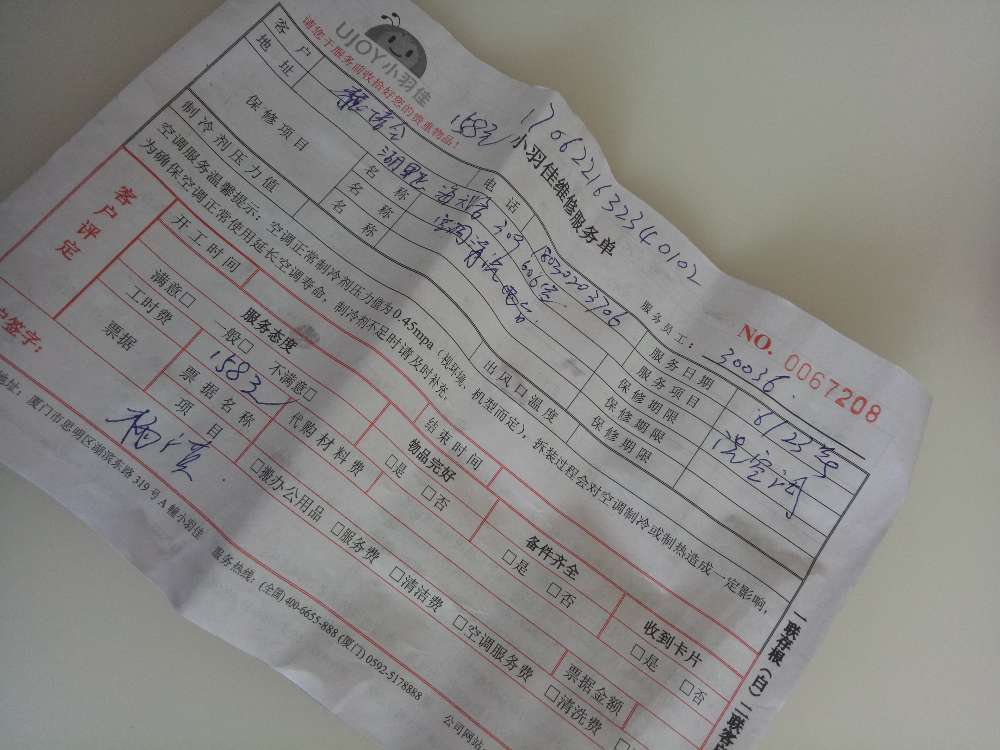 UJOY小羽佳
请您于服务前收拾好您的贵重物品！
17062216323340102
小羽佳维修服务单
服务员工：30036
NO. 0067208
客户
电话
服务日期 6/23号
地址
服务项目 洗空调
保修项目
名称
保修期限
名称
保修期限
名称
保修期限
制冷剂压力值
出风口温度
空调服务温馨提示：空调正常制冷剂压力值为0.45mpa（视环境、机型而定），拆装过程会对空调制冷或制热造成一定影响，
为确保空调正常使用延长空调寿命，制冷剂不足时请及时补充。
客户评定
开工时间
结束时间
服务态度
物品完好
备件齐全
收到卡片
满意□ 一般□ 不满意□
□是 □否
□是 □否
□是 □否
工时费 1583
代购材料费
票据
票据名称
票据金额
项目
□搬办公用品 □服务费 □清洁费 □空调服务费 □清洗费
签字：
地址：厦门市思明区湖滨东路319号A幢小羽佳
服务热线：(全国) 400-6655-888 (厦门) 0592-5178888
公司网站
一联存根（白）二联客